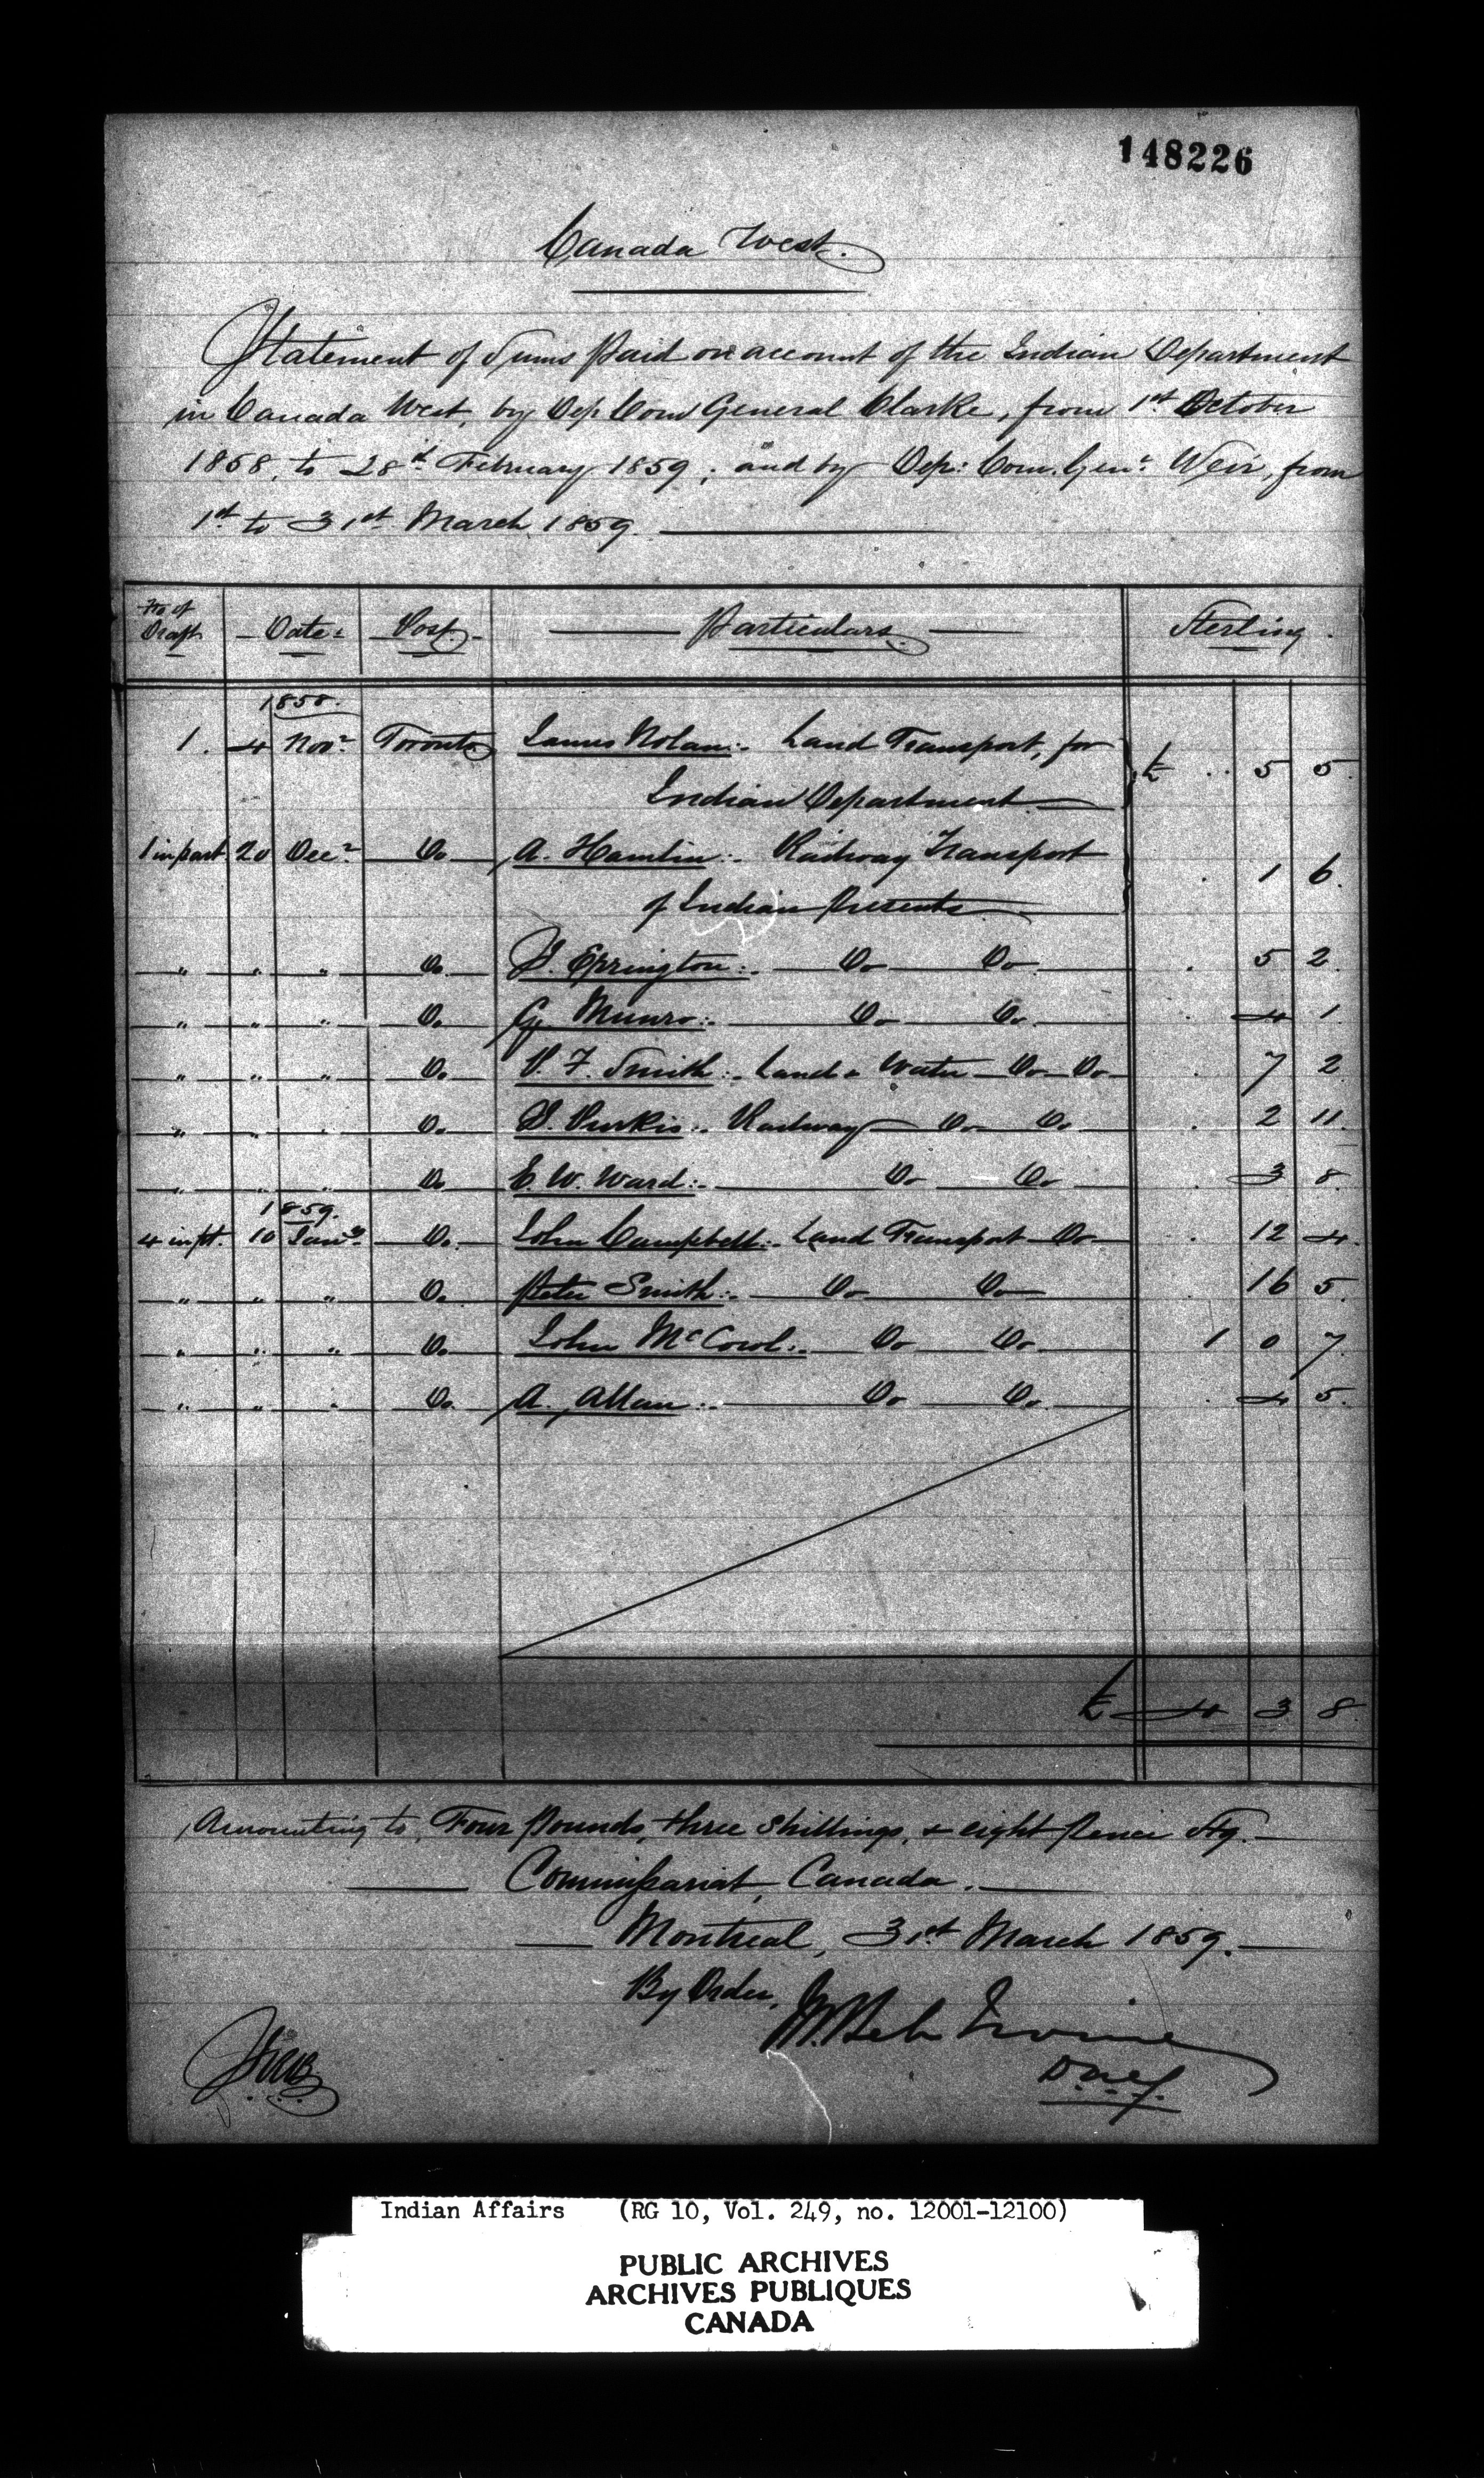 148226
Canada West.
Statement of Sums Paid on account of the Indian Department
in Canada West, by Dep Com General Clarke, from 1st October
1858, to 28th February 1859; and by Dep: Com. Genl. Weir, from
1st to 31st March 1859.
No of Draft Date Post Particulars Sterling.
1858.
1. 4 Novr. Toronto James Nolan:. Land Transport, for
Indian Department £ .. 5 5.
1 in part 20 Decr. Do A. Hamlin:. Railway Transport
of Indian Presents . 1 6.
" " " Do. J. Errington:. Do Do . 5 2.
" " " Do. G. Munro:. Do Do. . 4 1.
" " " Do. V. F. Smith:. Land & Water Do Do . 7 2
" " " Do. J. Purkis:. Railway Do Do . 2 11.
" " " Do E. W. Ward:. Do Do . 3 8.
1859.
4 in pt. 10 Jany. Do. John Campbell:. Land Transport Do . 12 4.
" " " Do. Peter Smith:. Do Do . 16 5.
" " " Do. John McCorol:. Do Do 1 0 7.
" " " Do. A. Allan:. Do Do. . 4 5.
£ 4 3 8.
Amounting to, Four Pounds, three Shillings, & eight Pence Stg.
Commissariat, Canada.
Montreal, 31st March 1859.
By Order,
Irvine
Indian Affairs (RG 10, Vol. 249, no. 12001-12100)
PUBLIC ARCHIVES
ARCHIVES PUBLIQUES
CANADA